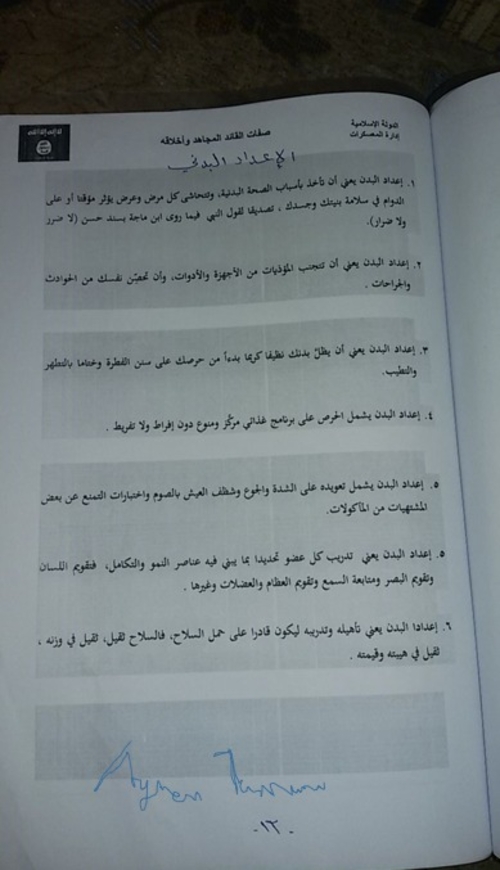 الدولة الإسلامية
إدارة المعسكرات
صفات القائد المجاهد وأخلاقه
الإعداد البدني
١. إعداد البدن يعني أن تأخذ بأسباب الصحة البدنية، وتتحاشى كل مرض وعرض يؤثر مؤقتا أو على
الدوام في سلامة بنيتك وجسدك ، تصديقا لقول النبي فيما روى ابن ماجة بسند حسن (لا ضرر
ولا ضرار).
٢. إعداد البدن يعني أن تتجنب المؤذيات من الأجهزة والأدوات، وأن تحصّن نفسك من الحوادث
والجراحات .
٣. إعداد البدن يعني أن يظلّ بدنك نظيفا كريما بدءاً من حرصك على سنن الفطرة وختاما بالتطهر
والتطيب.
٤. إعداد البدن يشمل الحرص على برنامج غذائي مركّز ومنوع دون إفراط ولا تفريط .
٥. إعداد البدن يشمل تعويده على الشدة والجوع وشظف العيش بالصوم واختبارات التمنع عن بعض
المشتهيات من المأكولات.
٥. إعداد البدن يعني تدريب كل عضو تحديدا بما يبني فيه عناصر النمو والتكامل، فتقويم اللسان
وتقويم البصر ومتابعة السمع وتقويم العظام والعضلات وغيرها .
٦. إعدادا البدن يعني تأهيله وتدريبه ليكون قادرا على حمل السلاح، فالسلاح ثقيل، ثقيل في وزنه ،
ثقيل في هيبته وقيمته .
-١٣-